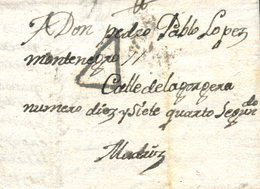 A Don pedro Pablo Lopez
montenegro
4
Calle de la gorgera
numero diez y siete quarto segundo
Madrid